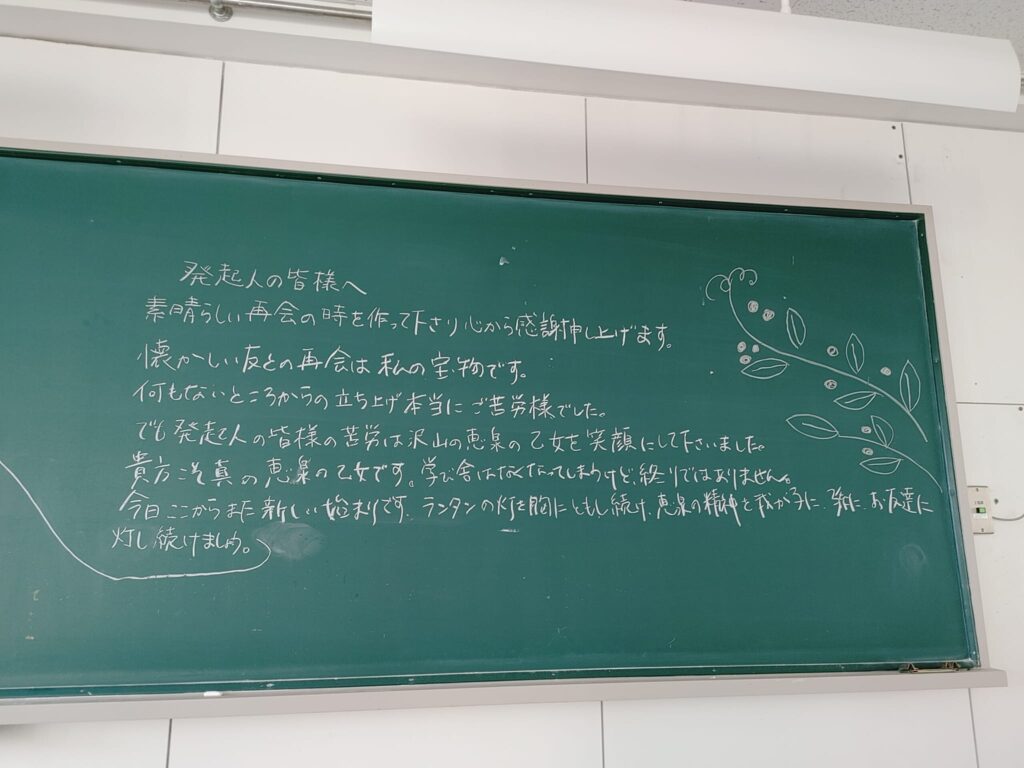 発起人の皆様へ
素晴らしい再会の時を作って下さり心から感謝申し上げます。
懐かしい友との再会は私の宝物です。
何もないところからの立ち上げ本当にご苦労様でした。
でも発起人の皆様の苦労は沢山の恵泉の乙女を笑顔にして下さいました。
貴方こそ真の恵泉の乙女です。学び舎はなくなってしまうけど、終りではありません。
今日ここからまた新しい始まりです。ランタンの灯を胸にともし続け、恵泉の精神を我が子に、孫に、お友達に
灯し続けましょう。